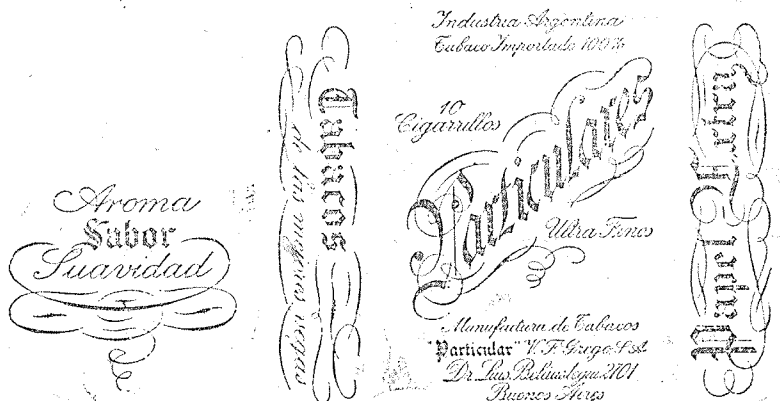 Aroma
Sabor
Suavidad
Tabacos
de los mejores
Industria Argentina
Tabaco Importado 100%
10
Cigarrillos
Particulares
Ultra Finos
Manufactura de Tabacos
"Particular" V. F. Grego
Dr. Luis 2101
Buenos Aires
Papel